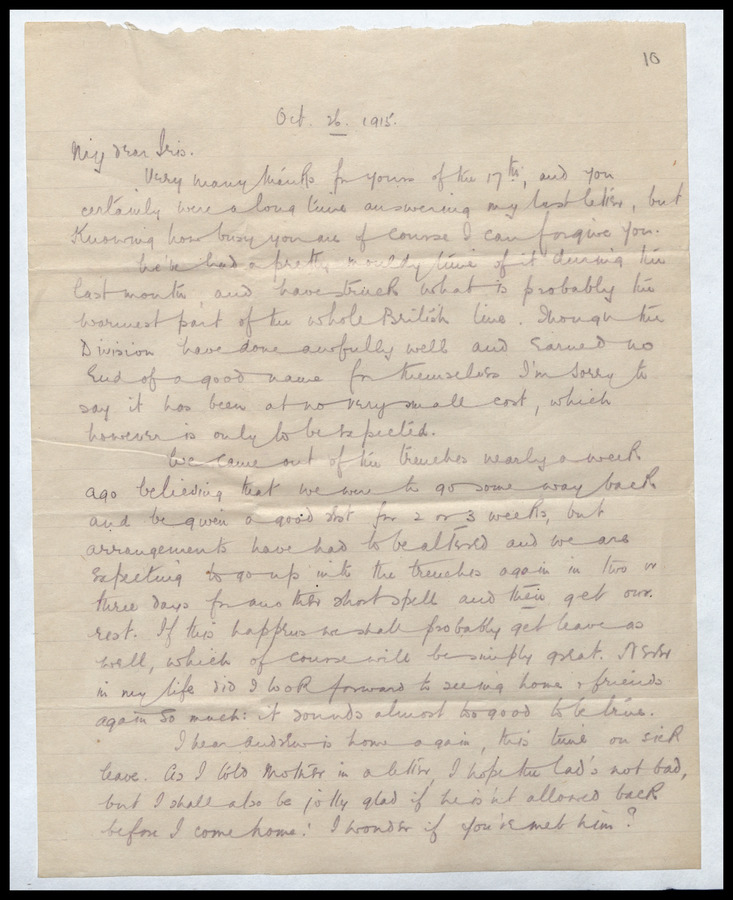 10
Oct. 26. 1915.
My dear Iris.
Very many thanks for yours of the 17th, and you
certainly were a long time answering my last letter, but
Knowing how busy you are of course I can forgive you.
We've had a pretty mouldy time of it during the
last month, and have struck what is probably the
warmest part of the whole British line. Though the
Division have done awfully well and earned no
End of a good name for themselves I'm sorry to
say it has been at no very small cost, which
however is only to be expected.
We came out of the trenches nearly a week
ago believing that we were to go some way back
and be given a good rest for 2 or 3 weeks, but
arrangements have had to be altered and we are
Expecting to go up into the trenches again in two or
three days for another short spell and then get our
rest. If this happens we shall probably get leave as
well, which of course will be simply great. Never
in my life did I look forward to seeing home & friends
again so much: it sounds almost too good to be true.
I hear Andrew is home again, this time on sick
leave. As I told Mother in a letter, I hope the lad's not bad,
but I shall also be jolly glad if he isn't allowed back
before I come home! I wonder if you've met him?